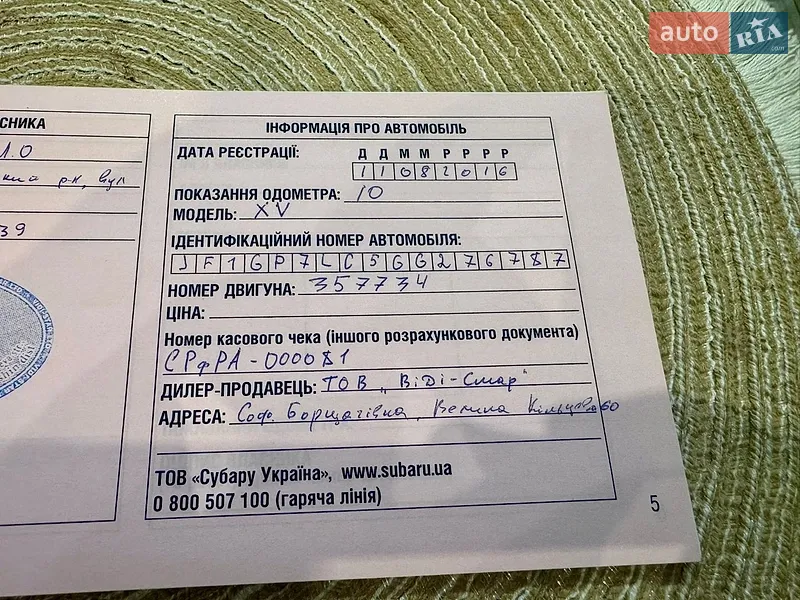 auto RIA.com
СНИКА
Л.О
р-н, вул
39
ІНФОРМАЦІЯ ПРО АВТОМОБІЛЬ
ДАТА РЕЄСТРАЦІЇ: Д Д М М Р Р Р Р
1 1 0 8 2 0 1 6
ПОКАЗАННЯ ОДОМЕТРА: 10
МОДЕЛЬ: XV
ІДЕНТИФІКАЦІЙНИЙ НОМЕР АВТОМОБІЛЯ:
J F 1 G P 7 L C 5 G G 2 7 6 7 8 7
НОМЕР ДВИГУНА: 357734
ЦІНА:
Номер касового чека (іншого розрахункового документа)
СРфРА-000081
ДИЛЕР-ПРОДАВЕЦЬ: ТОВ „ВіДі-Стар"
АДРЕСА: Соф. Борщагівка, Велика Кільцева 60
ТОВ «Субару Україна», www.subaru.ua
0 800 507 100 (гаряча лінія)
5